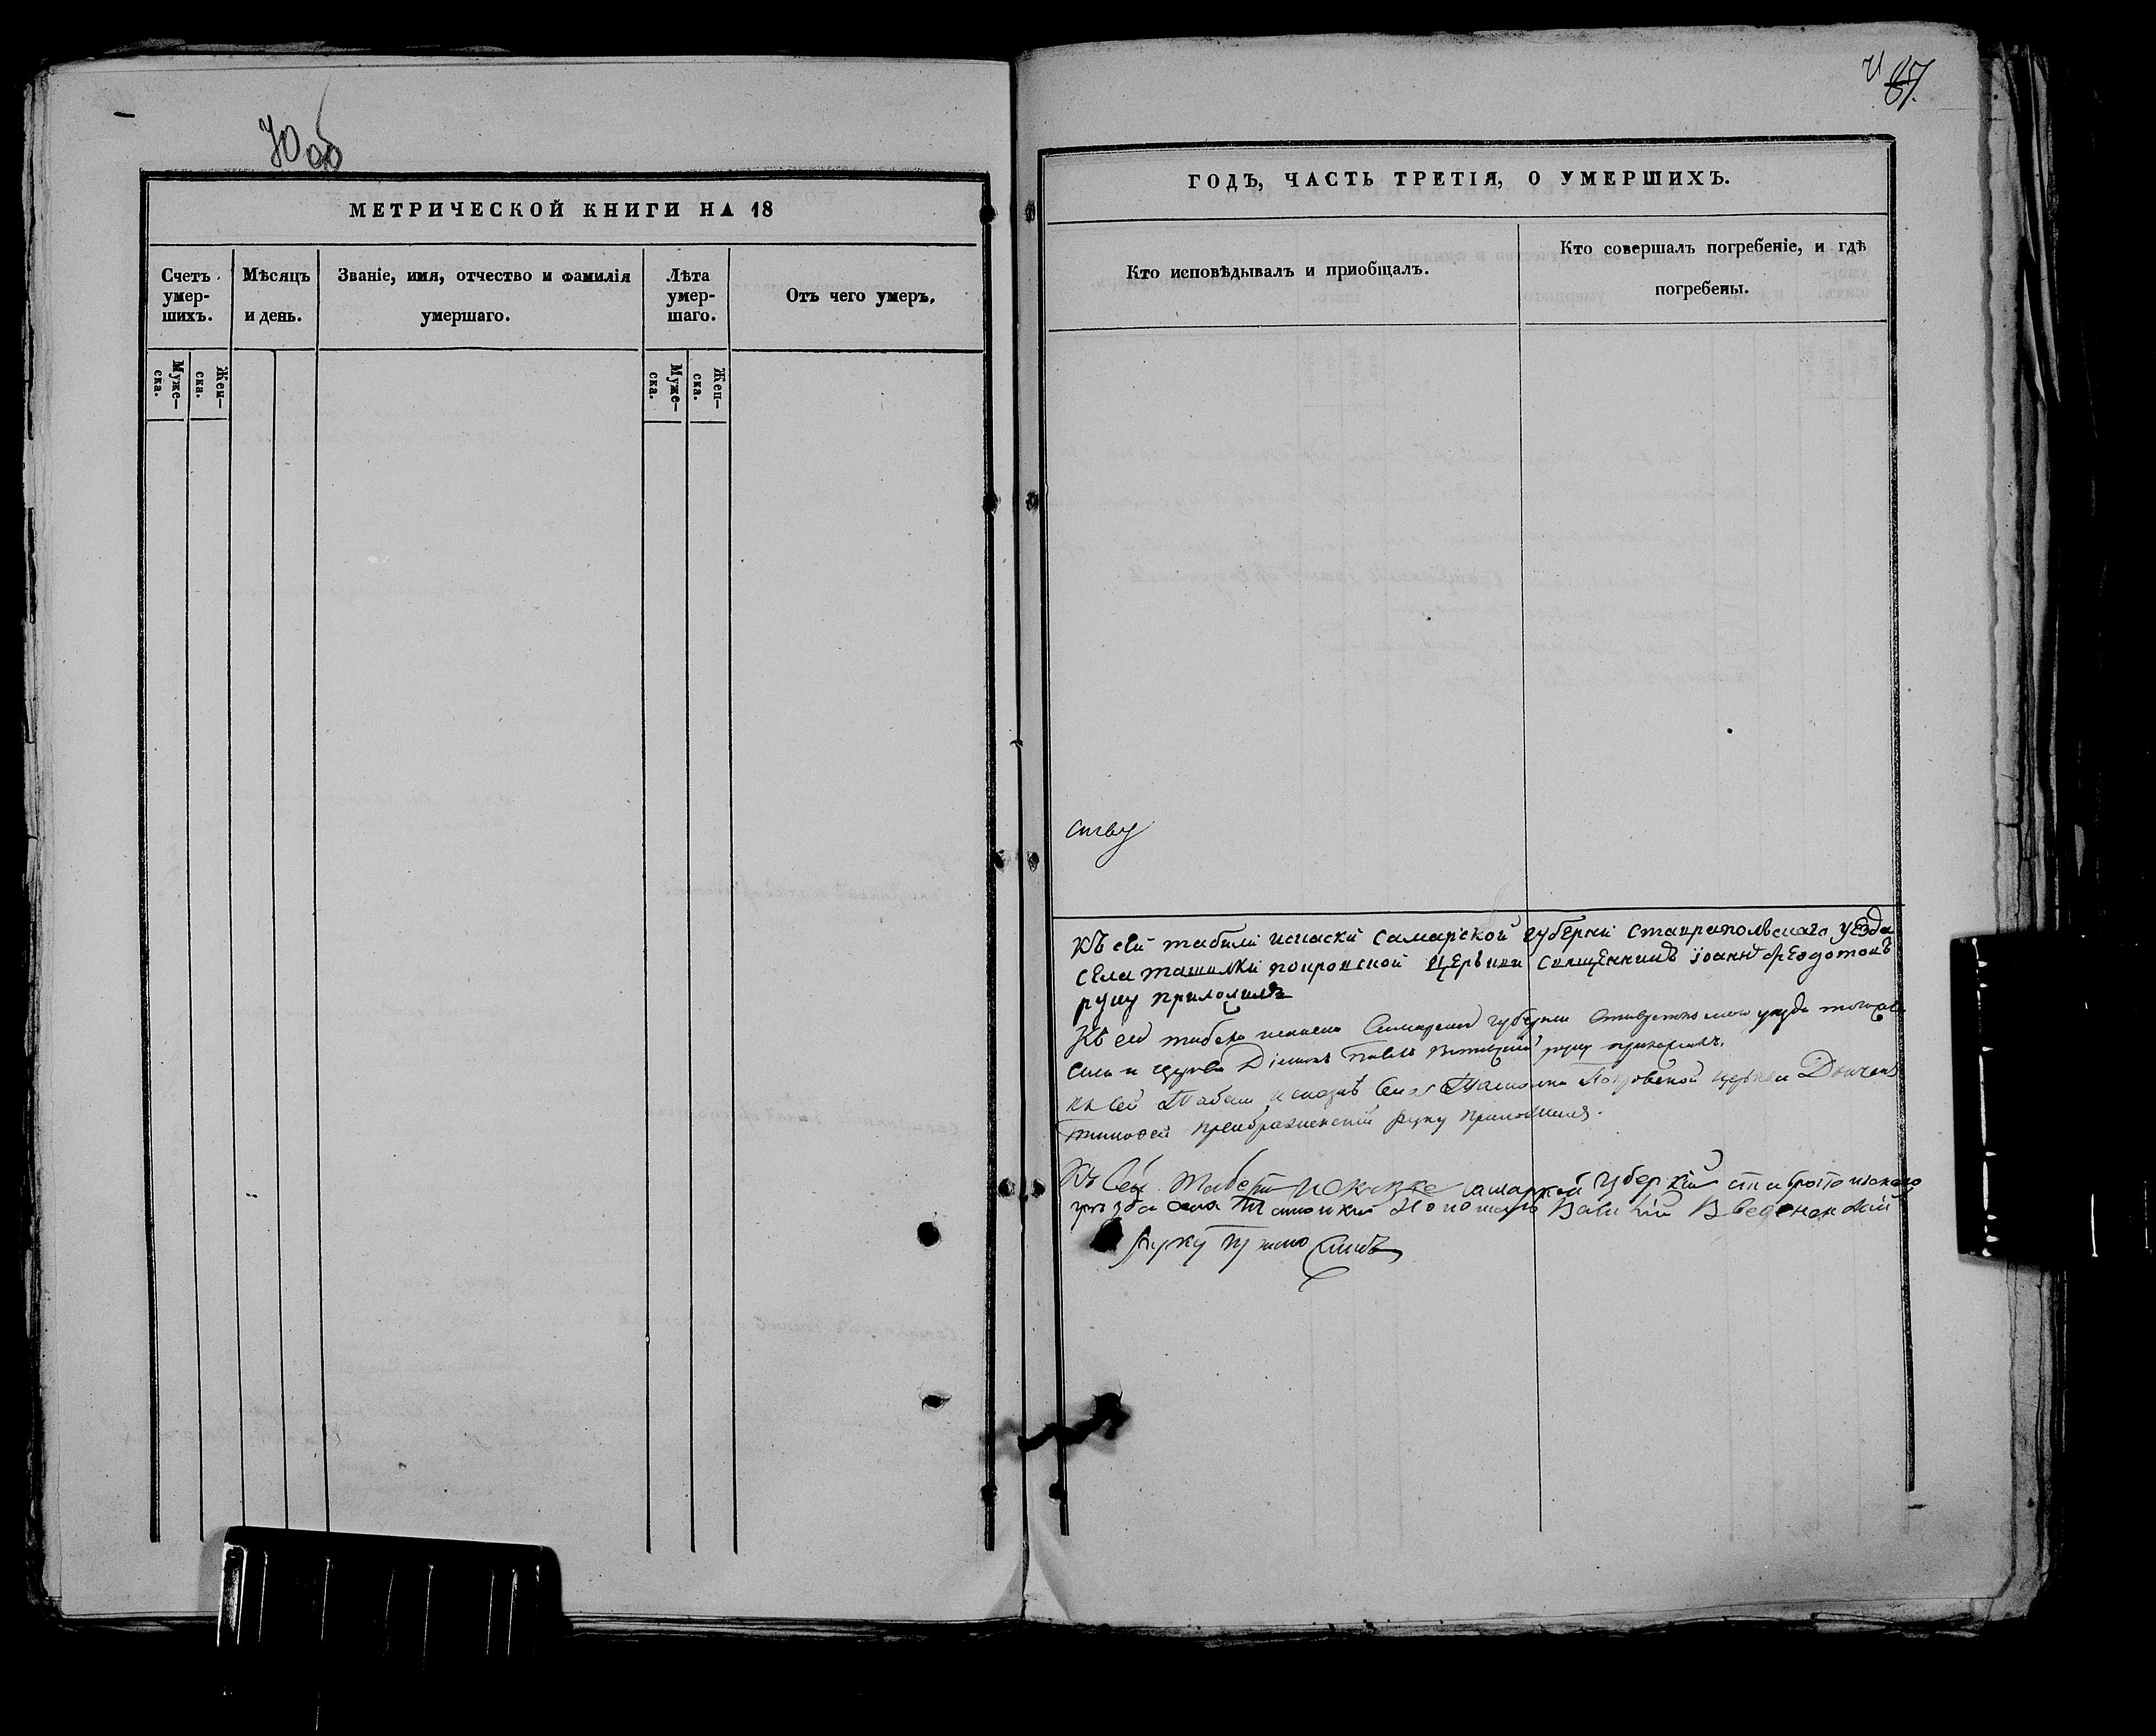 70 об
МЕТРИЧЕСКОЙ КНИГИ НА 18
Счетъ умер-шихъ.
Мѣсяцъ и день.
Званіе, имя, отчество и фамилія умершаго.
Лѣта умер-шаго.
Отъ чего умеръ.
Муже-ска.
Жен-ска.
Муже-ска.
Жен-ска.
87.
ГОДЪ, ЧАСТЬ ТРЕТІЯ, О УМЕРШИХЪ.
Кто исповѣдывалъ и приобщалъ.
Кто совершалъ погребеніе, и гдѣ погребены.
Къ сей табели Самарской губерніи Ставропольскаго уѣзда
села Ташолки покровской церькви священникъ іоаннъ Феодотовъ
руку приложилъ
Къ сей табели Самарской губерніи уѣзда
села и церкви Діаконъ Павелъ руку приложилъ.
къ сей Табели села Ташолки Покровской церкви Дьячекъ
тимофей преображенскій руку приложилъ.
Къ сей табели самарской губерніи
уѣзда села Ташолки Пономарь Василій Введенскій
руку приложилъ